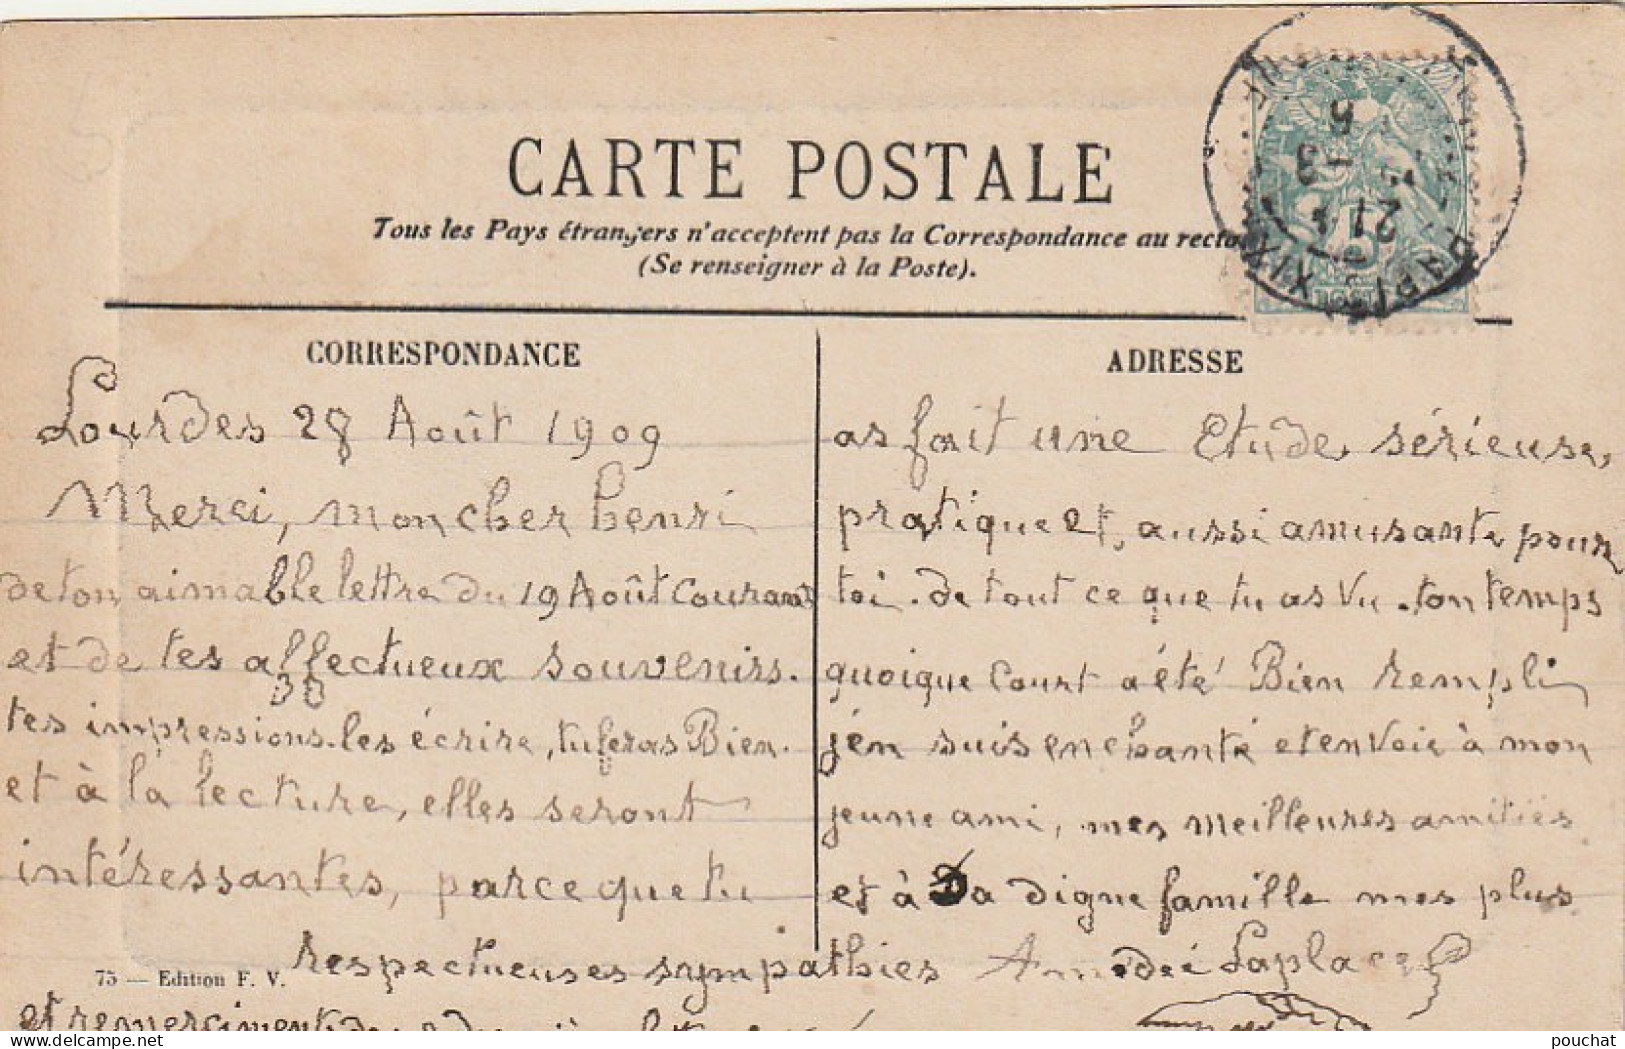 CARTE POSTALE
Tous les Pays étrangers n'acceptent pas la Correspondance au recto
(Se renseigner à la Poste).
CORRESPONDANCE
Lourdes 28 Août 1909
Merci, mon cher henri
de ton aimable lettre du 19 Août Courant
et de tes affectueux souvenirs.
tes impressions. les écrire, tu feras Bien.
et à la lecture, elles seront
intéressantes, parce que tu
ADRESSE
as fait une Etude, sérieuse,
pratique et, aussi amusante pour
toi. de tout ce que tu as Vu. ton temps
quoique Court a été Bien rempli
j'en suis enchanté et envoie à mon
jeune ami, mes meilleures amitiés
et à Sa digne famille mes plus
respectueuses sympathies Amédée Laplace
75 — Edition F. V.
et remerciments
PARIS XIX
21
-3
5
pouchat